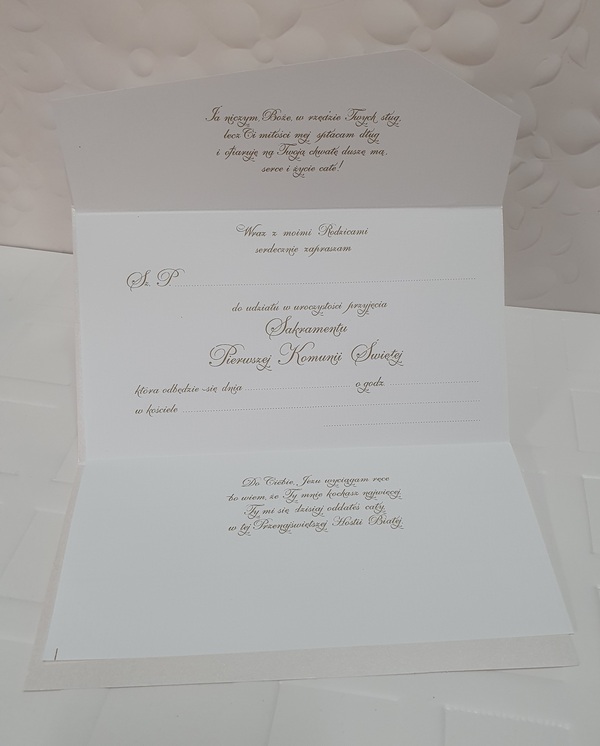 Ja niczym, Boże, w rzędzie Twych sług,
lecz Ci miłości mej spłacam dług
i ofiaruję na Twoją chwałę duszę mą,
serce i życie całe!
Wraz z moimi Rodzicami
serdecznie zapraszam
Sz. P.
do udziału w uroczystości przyjęcia
Sakramentu
Pierwszej Komunii Świętej
która odbędzie się dnia o godz.
w kościele
Do Ciebie, Jezu wyciągam ręce
bo wiem, że Ty mnie kochasz najwięcej.
Ty mi się dzisiaj oddałeś cały,
w tej Przenajświętszej Hostii Białej.